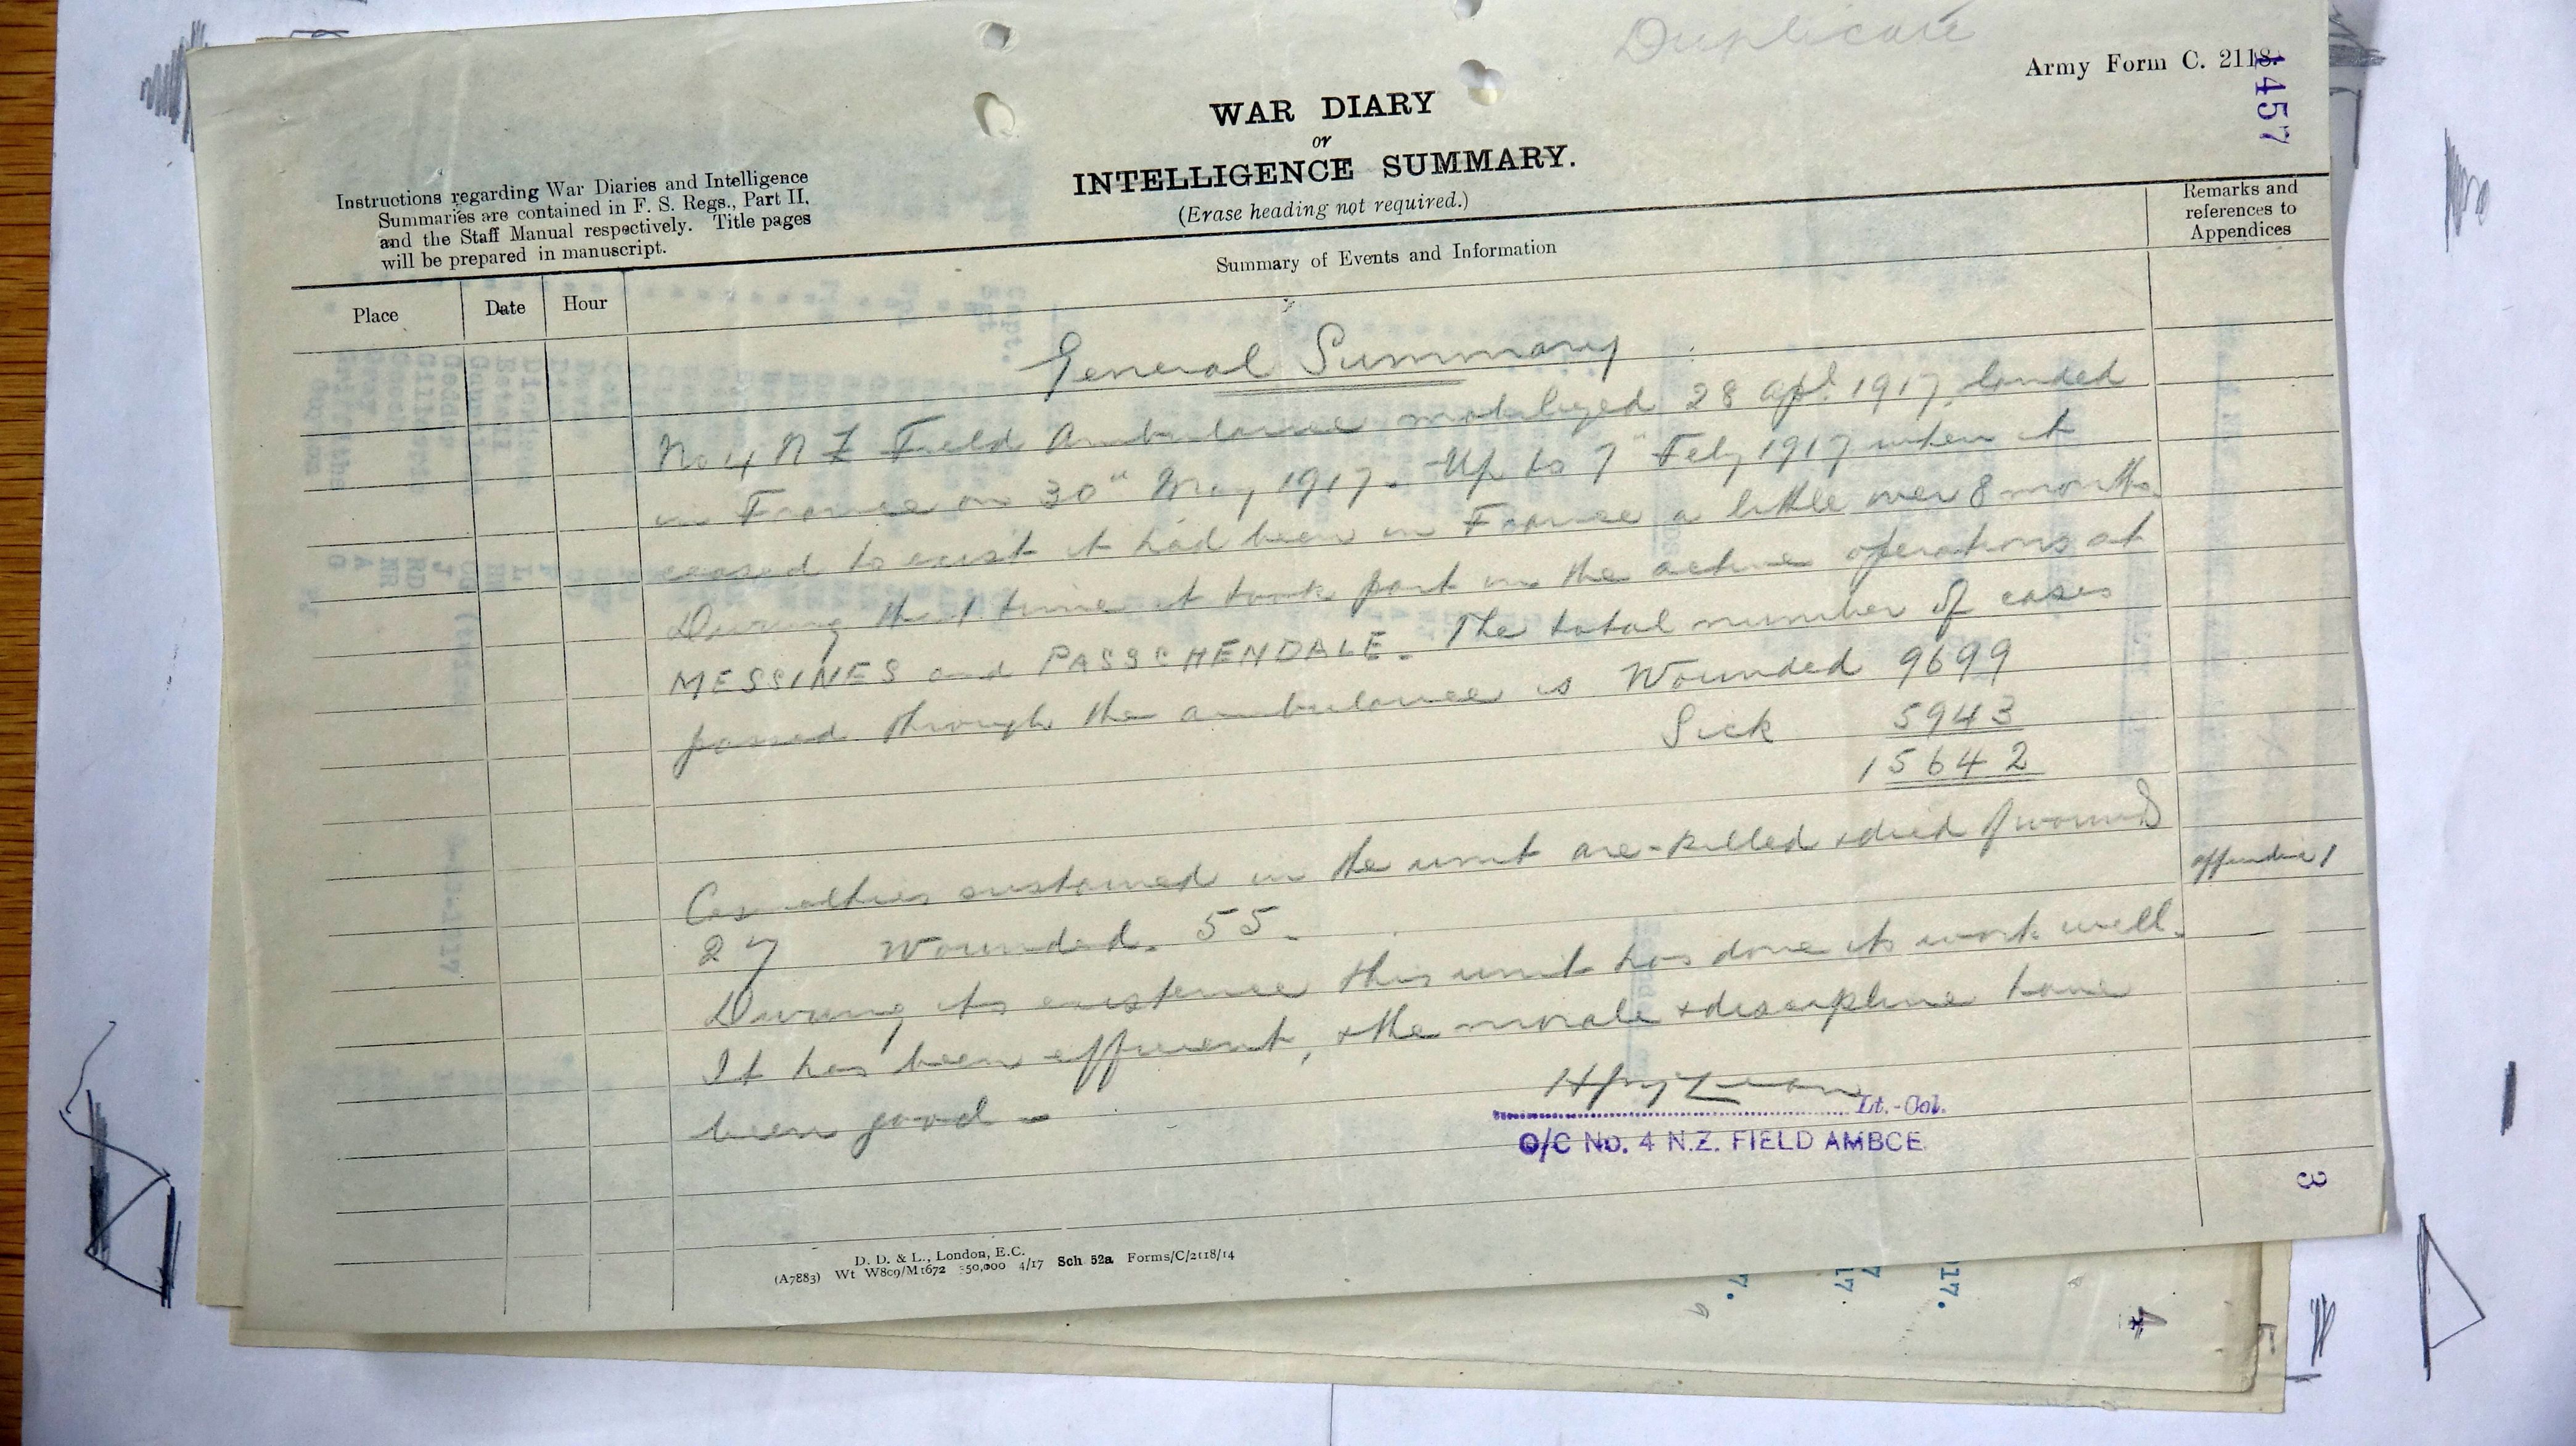 Duplicate
Army Form C. 2118.
1457
WAR DIARY
or
INTELLIGENCE SUMMARY.
(Erase heading not required.)
Instructions regarding War Diaries and Intelligence
Summaries are contained in F. S. Regs., Part II,
and the Staff Manual respectively. Title pages
will be prepared in manuscript.
Place
Date
Hour
Summary of Events and Information
Remarks and
references to
Appendices
General Summary
No 4 N Z Field Ambulance mobilized 28 Apl. 1917, landed
in France on 30" May 1917. Up to 7" Feby 1917 when it
ceased to exist it had been in France a little over 8 months.
During that time it took part in the active operations at
MESSINES and PASSCHENDALE. The total number of cases
passed through the ambulance is Wounded 9699
Sick 5943
15642
Casualties sustained in the unit are - killed & died of wounds
27 Wounded. 55.
appendix 1
During its existence this unit has done its work well.
It has been efficient, & the morale & discipline have
been good -
Lt.-Col.
O/C No. 4 N.Z. FIELD AMBCE
3
D. D. & L., London, E.C.
(A7883) Wt W809/M1672 350,000 4/17 Sch 52a Forms/C/2118/14
17.
4